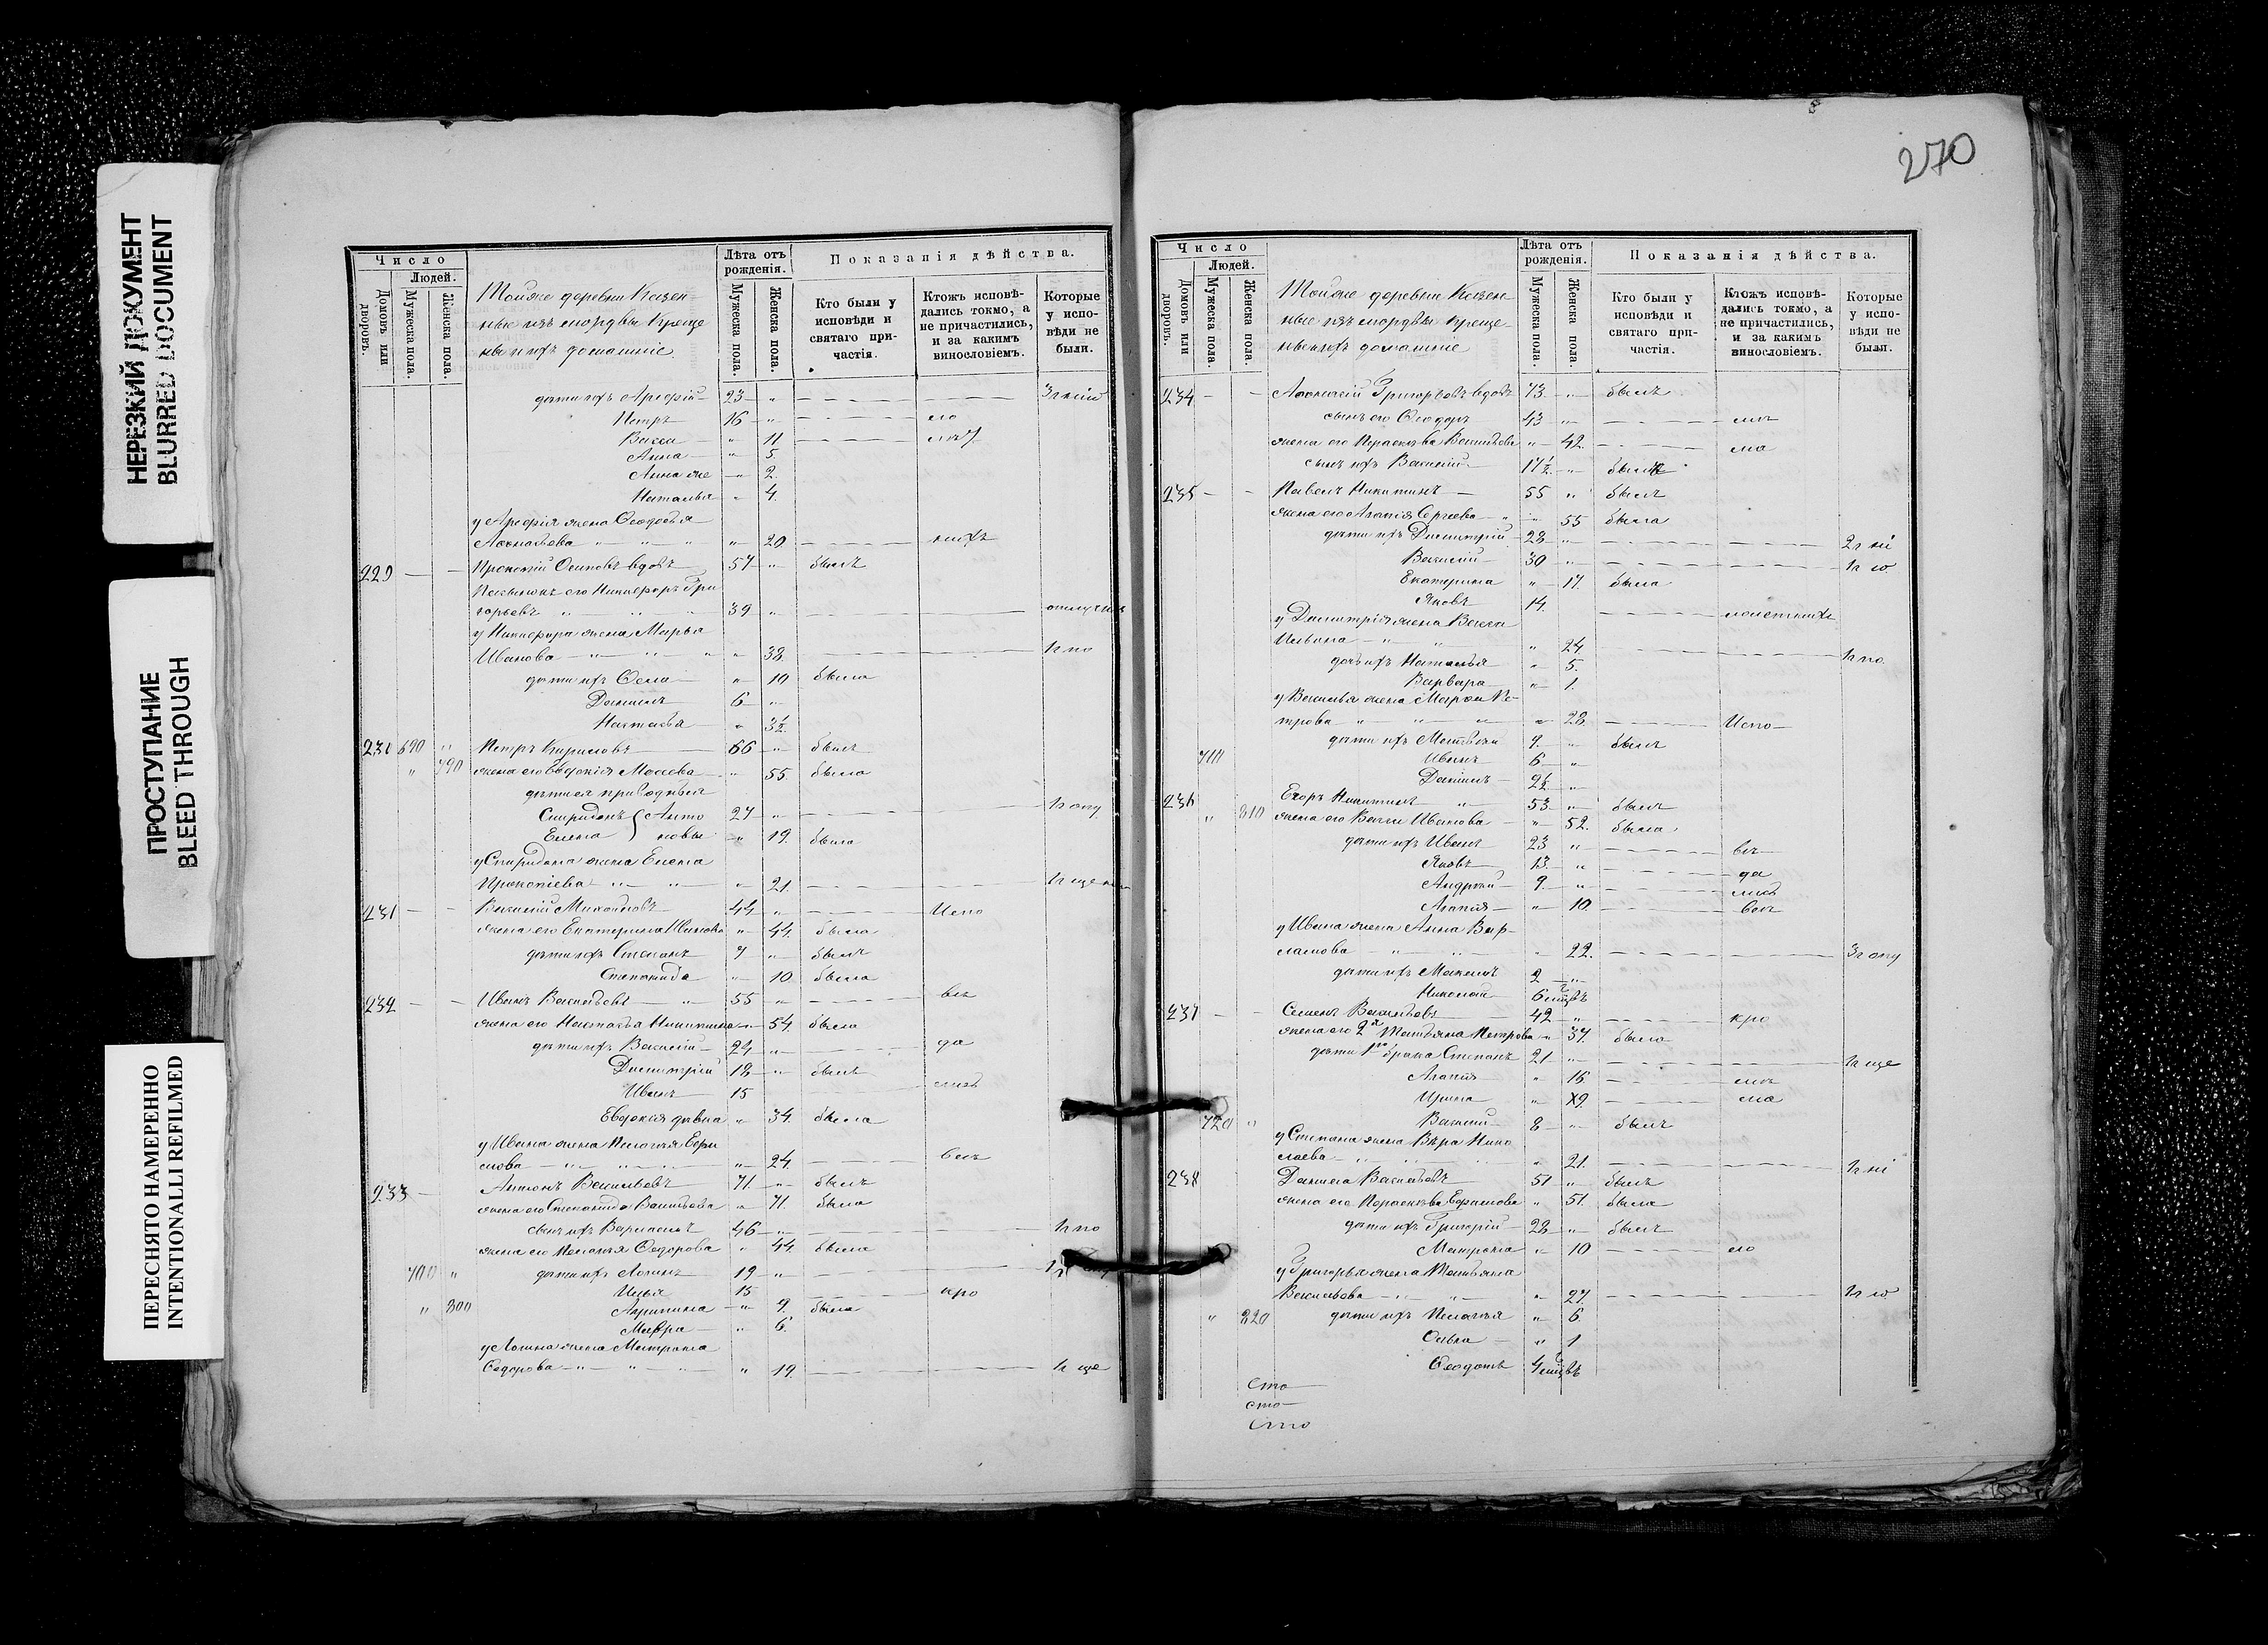 НЕРЕЗКИЙ ДОКУМЕНТ
BLURRED DOCUMENT
ПРОСТУПАНИЕ
BLEED THROUGH
ПЕРЕСНЯТО НАМЕРЕННО
INTENTIONALLI REFILMED
Число
Людей.
Домовъ или дворовъ.
Мужеска пола.
Женска пола.
Тойже деревни Казен-
ные изъ мордвы креще
ны и ихъ домашніе
Лѣта отъ рожденія.
Мужеска пола.
Женска пола.
Показанія дѣйства.
Кто были у исповѣди и святаго при-частія.
Ктожъ исповѣ-дались токмо, а не причастились, и за какимъ винословіемъ.
Которые у испо-вѣди не были.
дѣти ихъ Арефій 23 "
Петръ 16 " его
Васса " 11
Анна " 5
Анна же " 2
Наталья " 4
у Арефія жена Феодосья
" 20
229 Прокопій Осиповъ вдовъ 57 " былъ
Пасынокъ его Никифоръ Гри
горьевъ 39 "
у Никифора жена Марья
Иванова " 38
дѣти ихъ " 10 была
Даніилъ 6 "
Настасья " 3½
690 " Петръ Кириловъ 66 " былъ
" 790 жена его Евдокія Моесева " 55 была
дѣти ея приводныя
Спиридонъ } Анто 27 "
Елена } новы " 19 была
у Спиридона жена Елена
Прокопіева " 21
231 Василій Михайловъ 44 " Испо
жена его Екатерина Иванова " 44 была
дѣти ихъ Степанъ 7 " былъ
Степанида " 10 была
232 Иванъ Васильевъ 55 "
жена его Настасья Никитина " 54 была
дѣти ихъ Василій 24 " да
Димитрій 18 " былъ
Иванъ 15
Евдокія дѣвка " 34 была
у Ивана жена Пелагея Ефри
мова " 24
233 Антонъ Васильевъ 71 " былъ
жена его Степанида Васильева " 71 была
сынъ ихъ Варламъ 46 " 1г по
жена его Пелагея Федорова " 44 была
700 " дѣти ихъ Логинъ 19 "
Илья 15 про
" 800 Агрипина " 9 была
Мавра " 6
у Логина жена Матрона
Федорова " 19 1г ще
270
Число
Людей.
Домовъ или дворовъ.
Мужеска пола.
Женска пола.
Тойже деревни Казен-
ные изъ мордвы креще-
ны и ихъ домашніе
Лѣта отъ рожденія.
Мужеска пола.
Женска пола.
Показанія дѣйства.
Кто были у исповѣди и святаго при-частія.
Ктожъ исповѣ-дались токмо, а не причастились, и за какимъ винословіемъ.
Которые у испо-вѣди не были.
234 Григорьевъ вдовъ 73 " былъ
сынъ его Феодоръ 43 "
жена его Параскева Васильева " 42 ма
сынъ ихъ Василій 17½ " былъ
235 Павелъ Никитинъ 55 " былъ
жена его Агапія Сергеева " 55 была
дѣти ихъ Димитрій 28 "
Василій 30 "
Екатерина " 17 была
Яковъ 14
у Димитрія жена Васса
Ильина " 24 1г по
дочь ихъ Наталья " 5
Варвара " 1
у Василья жена Марѳа Пе-
трова " 28 Испо
дѣти ихъ Матвѣй 9 " былъ
710 Иванъ 6 "
Даніилъ 2½ "
236 Егоръ Никитинъ 53 " былъ
" 810 жена его Васса Иванова " 52 была
дѣти ихъ Иванъ 23 "
Яковъ 13 " да
Андрей 9 "
Агапія " 10
у Ивана жена Анна Вар-
ламова " 22
дѣти ихъ 2 "
Николай 6 мцвъ
237 Семенъ Васильевъ 42 " про
жена его 2я Татьяна Петрова " 37 была
дѣти 1го брака Степанъ 21 " 1г ще
Агапія " 16
Ирина ма
720 " Василій 8 " былъ
у Степана жена Вѣра Нико
лаева " 21
238 Данила Васильевъ 51 " былъ
жена его Параскева Ефимова " 51 была
дѣти ихъ Григорій 28 " былъ
Матрона " 10 его
у Григорья жена Татьяна
Васильева " 27
" 820 дѣти ихъ Пелагея " 6
" 1
Феодотъ 4 мцвъ
сто
сто
сто